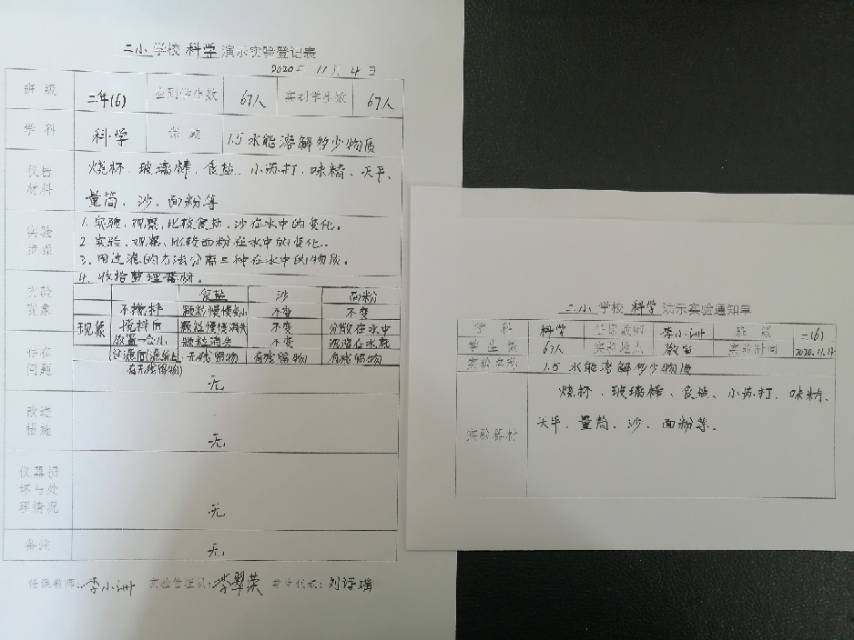 二小 学校 科学 演示实验登记表
2020年 11月 4日
班级 二年(6) 应到学生数 67人 实到学生数 67人
学科 科学 课题 1.5 水能溶解多少物质
仪器材料 烧杯、玻璃棒、食盐、小苏打、味精、天平、
量筒、沙、面粉等
1. 实验、观察、比较食盐、沙在水中的变化。
2. 实验、观察、比较面粉在水中的变化。
3. 用过滤的方法分离三种在水中的物质。
4. 收拾整理器材。
实验现象 食盐 沙 面粉
不搅拌 颗粒慢慢变小 不变 不变
现象 搅拌后 颗粒慢慢消失 不变 分散在水中
放置一会儿 颗粒消失 不变 沉淀在水底
过滤(滤纸上有无残留物) 无残留物 有残留物 有残留物
存在问题 无
改进措施 无
仪器损坏与处理情况 无
备注 无
任课教师：李小洲 实验管理员：李翠英 学生代表：刘诗瑞
二小 学校 科学 演示实验通知单
学科 科学 任课教师 李小洲 班级 二(6)
学生数 67人 实验地点 教室 实验时间 2020.11.4
实验名称 1.5 水能溶解多少物质
烧杯、玻璃棒、食盐、小苏打、味精、
实验器材 天平、量筒、沙、面粉等。